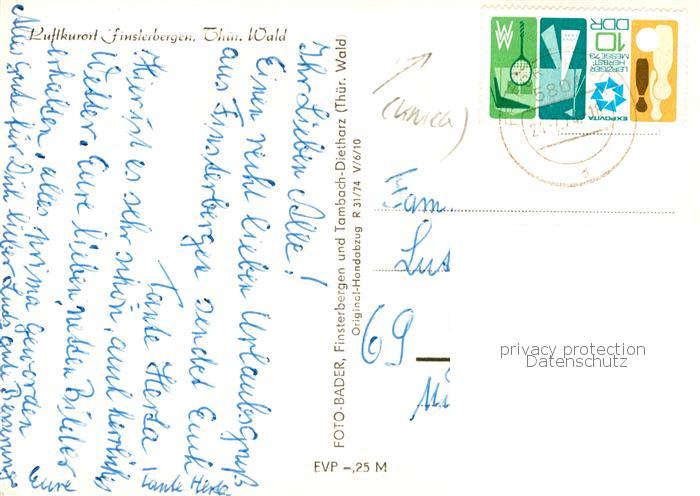 Luftkurort Finsterbergen, Thür. Wald
Ihr Lieben Alle!
Einen recht lieben Urlaubsgruß
aus Finsterbergen sendet Euch
Tante Herta,
Hier ist es sehr schön, auch herrliches
Wetter. Eure lieben netten Bilder
erhalten, alles prima geworden
Alles Gute für Dich lieber gute Besserung
Eure
Tante Herta
FOTO-BADER, Finsterbergen und Tambach-Dietharz (Thür. Wald)
Original-Handabzug R 31/74 V/6/10
EVP -,25 M
DDR
10
LEIPZIGER
HERBST-
MESSE 73
EXPOVITA
580
Fam.
69
privacy protection
Datenschutz